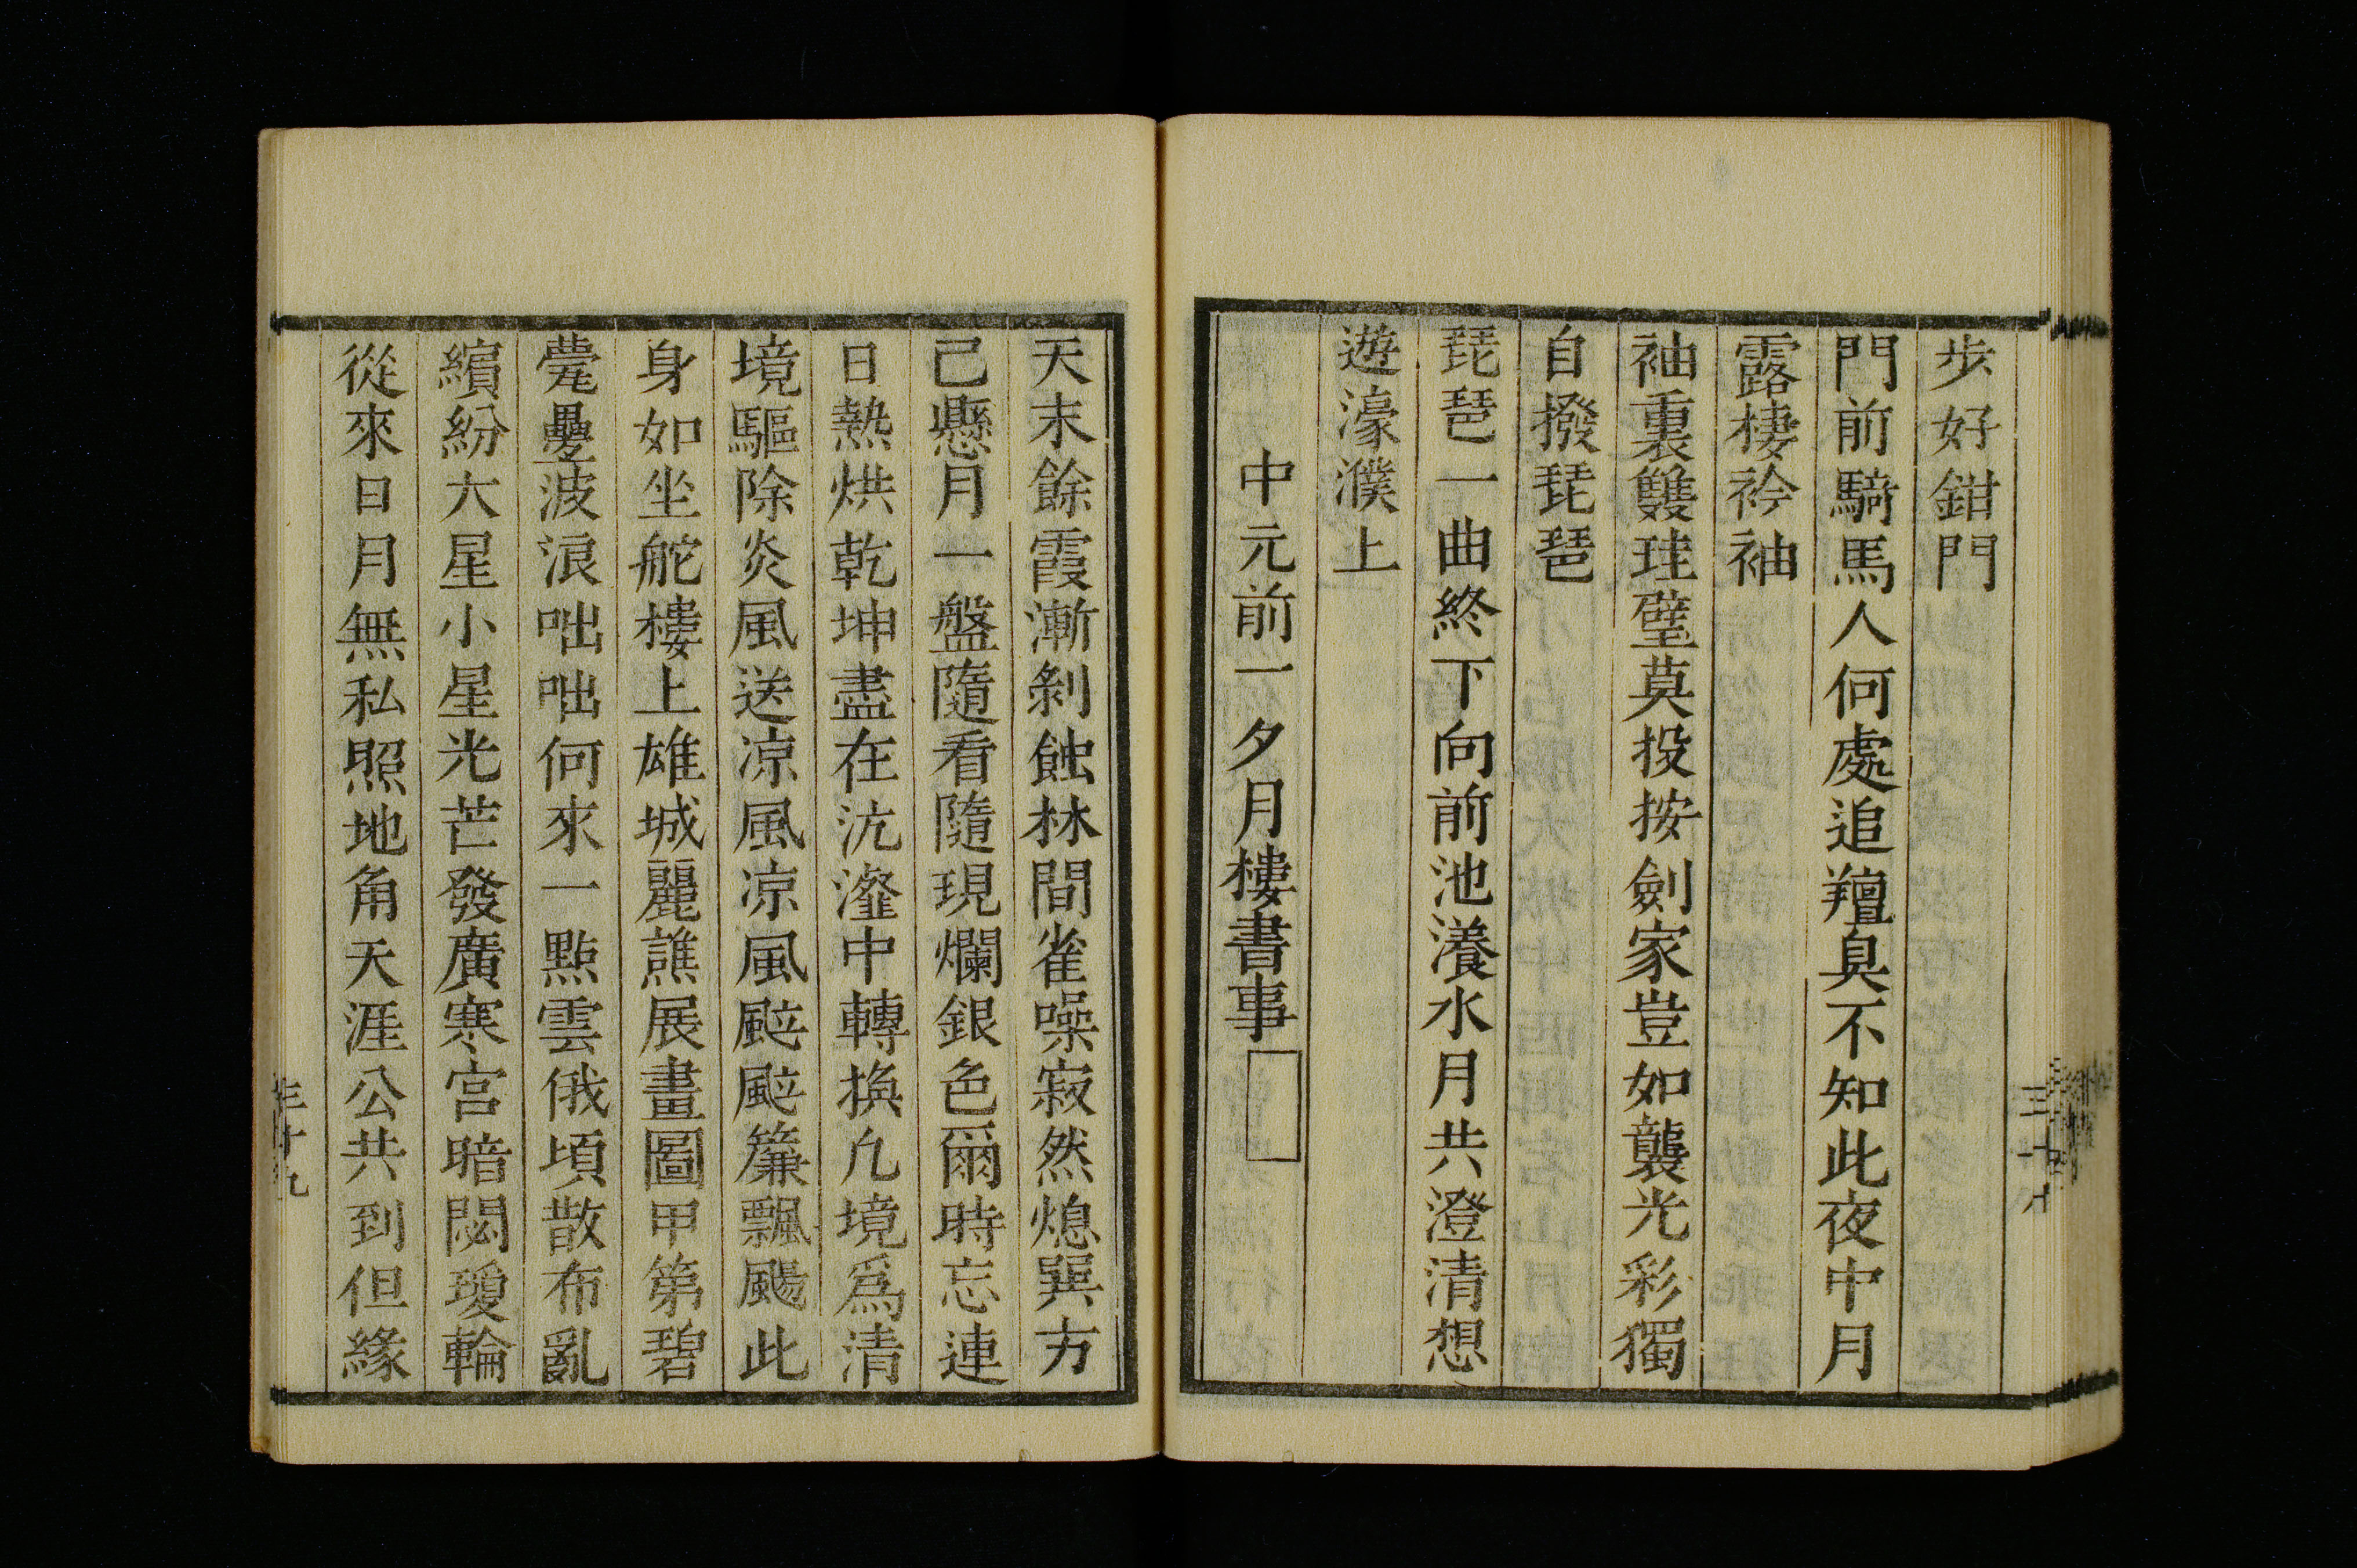 步好鉗門
門前騎馬人何處追羶臭不知此夜中月
露棲衿袖
袖裏雙珪璧莫投按劍家豈如襲光彩獨
自撥琵琶
琵琶一曲終下向前池瀁水月共澄清想
遊濠濮上
中元前一夕月樓書事
天末餘霞漸剝蝕林間雀噪寂然熄巽方
己懸月一盤隨看隨現爛銀色爾時忘連
日熱烘乾坤盡在沆瀣中轉換凢境爲清
境驅除炎風送凉風凉風颭颭簾飄颺此
身如坐舵樓上雄城麗譙展畫圖甲第碧
甍疊波浪咄咄何來一點雲俄頃散布亂
繽紛大星小星光芒發廣寒宮暗閟瓊輪
從來日月無私照地角天涯公共到但緣
三十九